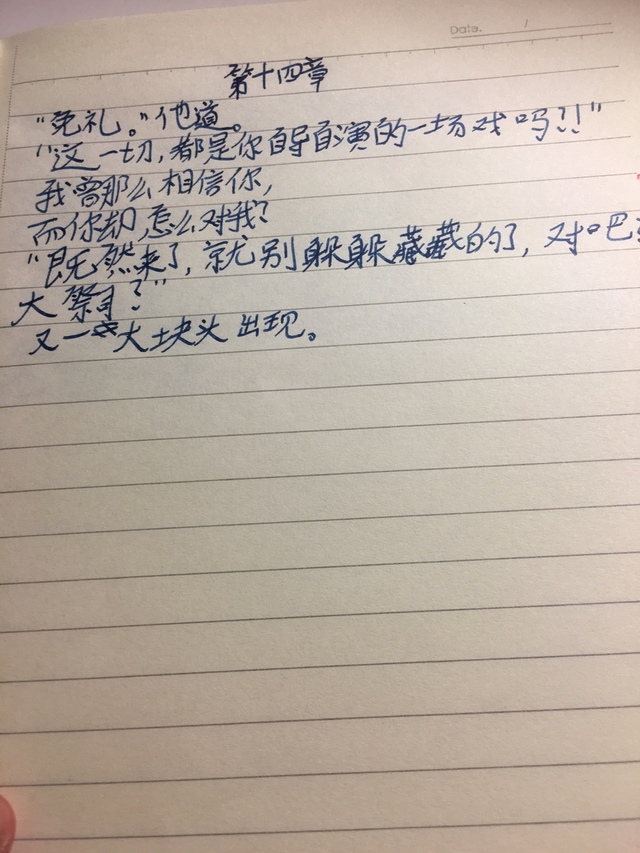 Date. /
第十四章
“免礼。”他道。
“这一切，都是你自导自演的一场戏吗?!”
我曾那么相信你，
而你却怎么对我？
“既然来了，就别躲躲藏藏的了，对吧，
大祭司？”
又一大块头出现。